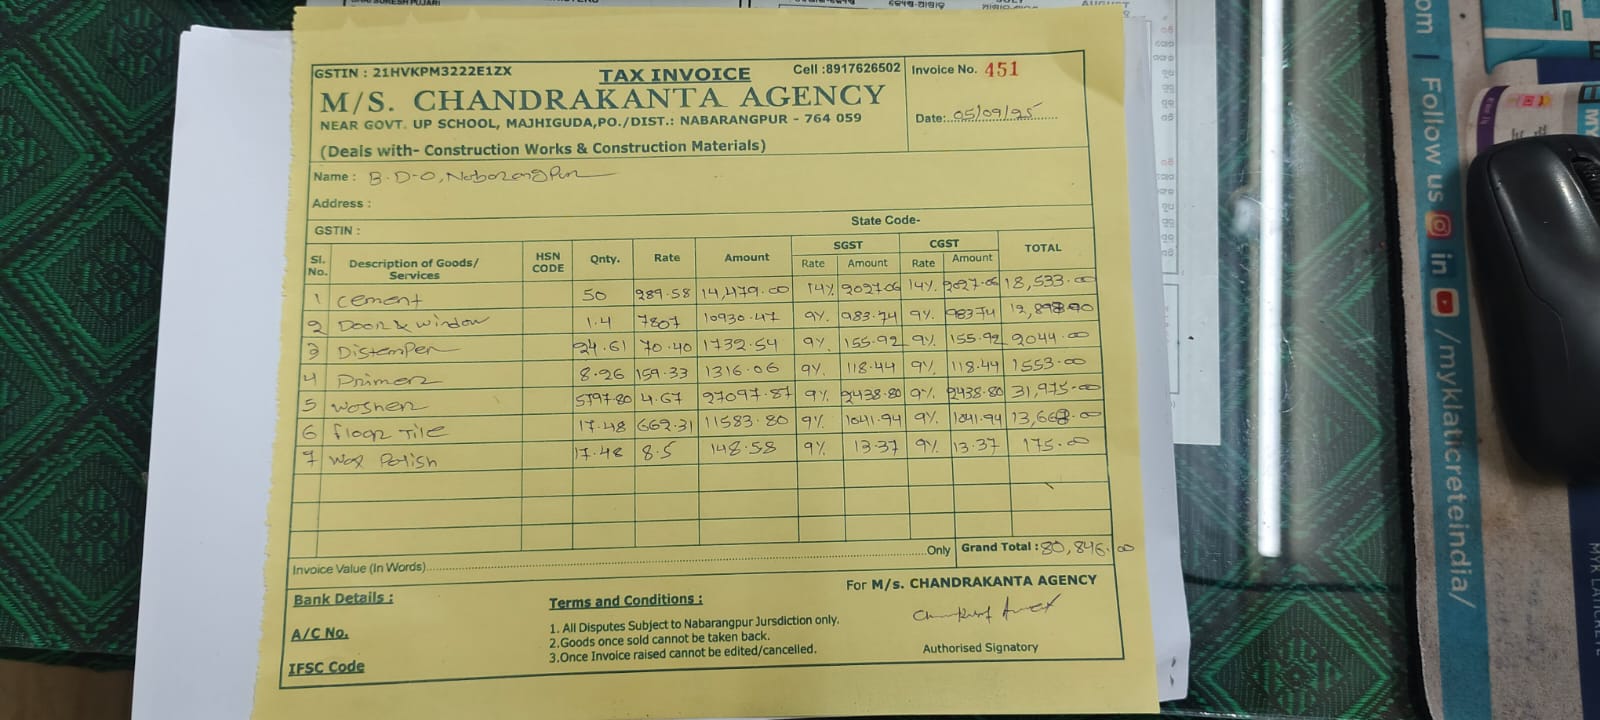 GSTIN : 21HVKPM3222E1ZX
TAX INVOICE
Cell :8917626502
Invoice No. 451
M/S. CHANDRAKANTA AGENCY
NEAR GOVT. UP SCHOOL, MAJHIGUDA,PO./DIST.: NABARANGPUR - 764 059
Date: 05/09/25
(Deals with- Construction Works & Construction Materials)
Name : B.D-O, Nabarangpur
Address :
State Code-
GSTIN :
Sl. No. Description of Goods/ Services HSN CODE Qnty. Rate Amount SGST Rate Amount CGST Rate Amount TOTAL
1 Cement 50 289.58 14,479.00 14% 2027.06 14% 2027.06 18,533.00
2 Door & window 1.4 7807 10930.47 9% 983.74 9% 983.74
3 Distemper 24.61 70.40 1732.54 9% 155.92 9% 155.92 2044.00
4 Primer 8.26 159.33 1316.06 9% 118.44 9% 118.44 1553.00
5 Washer 5797.80 4.67 27097.87 9% 2438.80 9% 2438.80 31,975.00
6 floor Tile 17.48 662.31 11583.80 9% 1041.94 9% 1041.94
7 Wax Polish 17.48 8.5 148.58 9% 13.37 9% 13.37 175.00
Invoice Value (In Words) Only
Grand Total : 80,846.00
Bank Details :
A/C No.
IFSC Code
Terms and Conditions :
1. All Disputes Subject to Nabarangpur Jursdiction only.
2.Goods once sold cannot be taken back.
3.Once Invoice raised cannot be edited/cancelled.
For M/s. CHANDRAKANTA AGENCY
Authorised Signatory
Follow us in /myklaticreteindia/